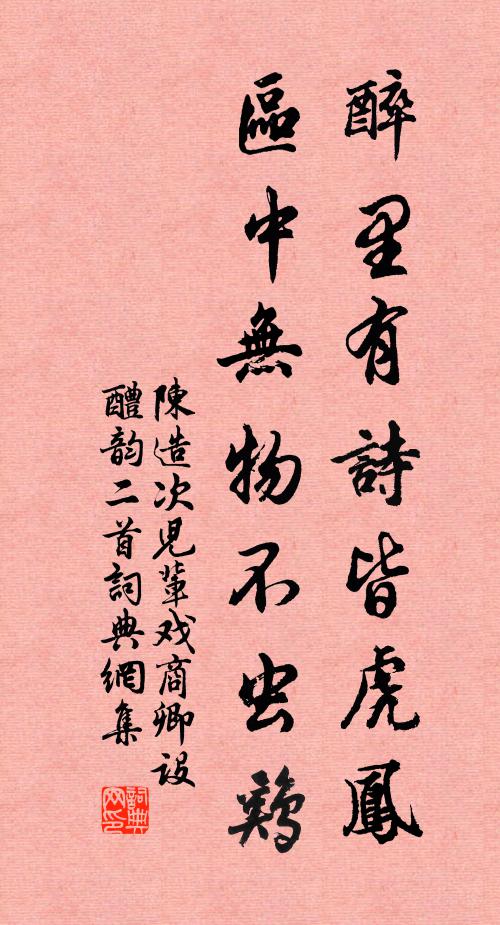 醉里有詩皆虎鳳
區中無物不虫鷄
陳造次兒輩戏商卿设
醴韵二首詞典網集
詞典網印